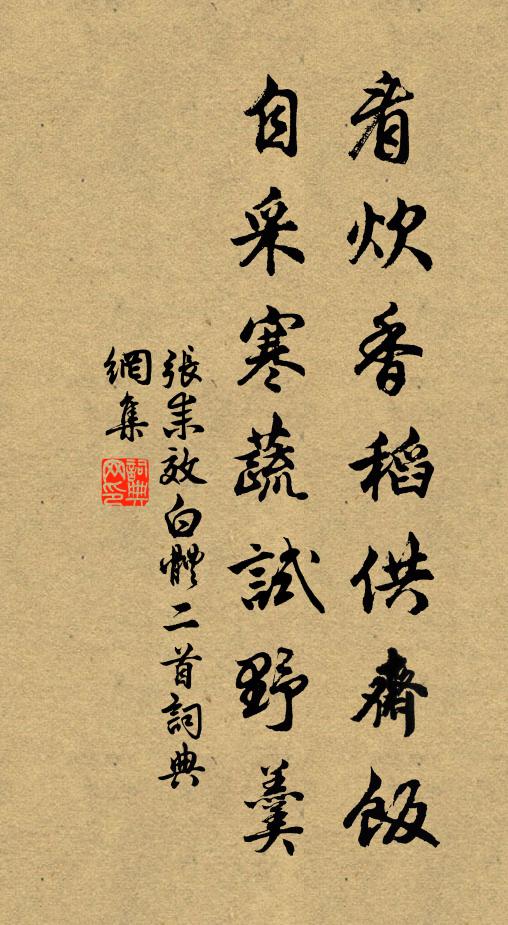 看炊香稻供齋飯
自采寒蔬試野羹
張耒效白體二首詞典
網集
詞典
网印